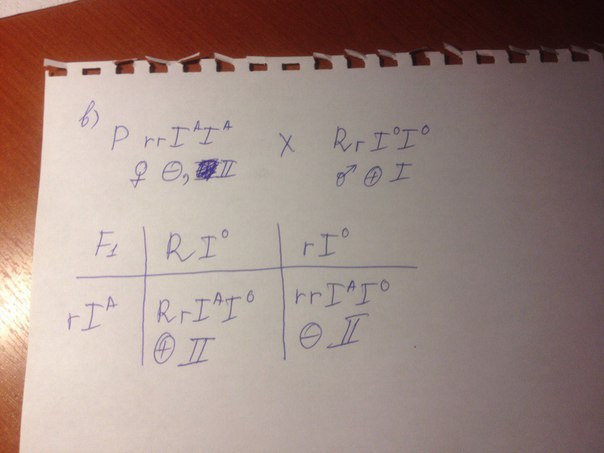 в)
P rrIᴬIᴬ X RrI⁰I⁰
♀ ⊖, II ♂ ⊕ I
F₁ RI⁰ rI⁰
rIᴬ RrIᴬI⁰ rrIᴬI⁰
⊕ II ⊖ II